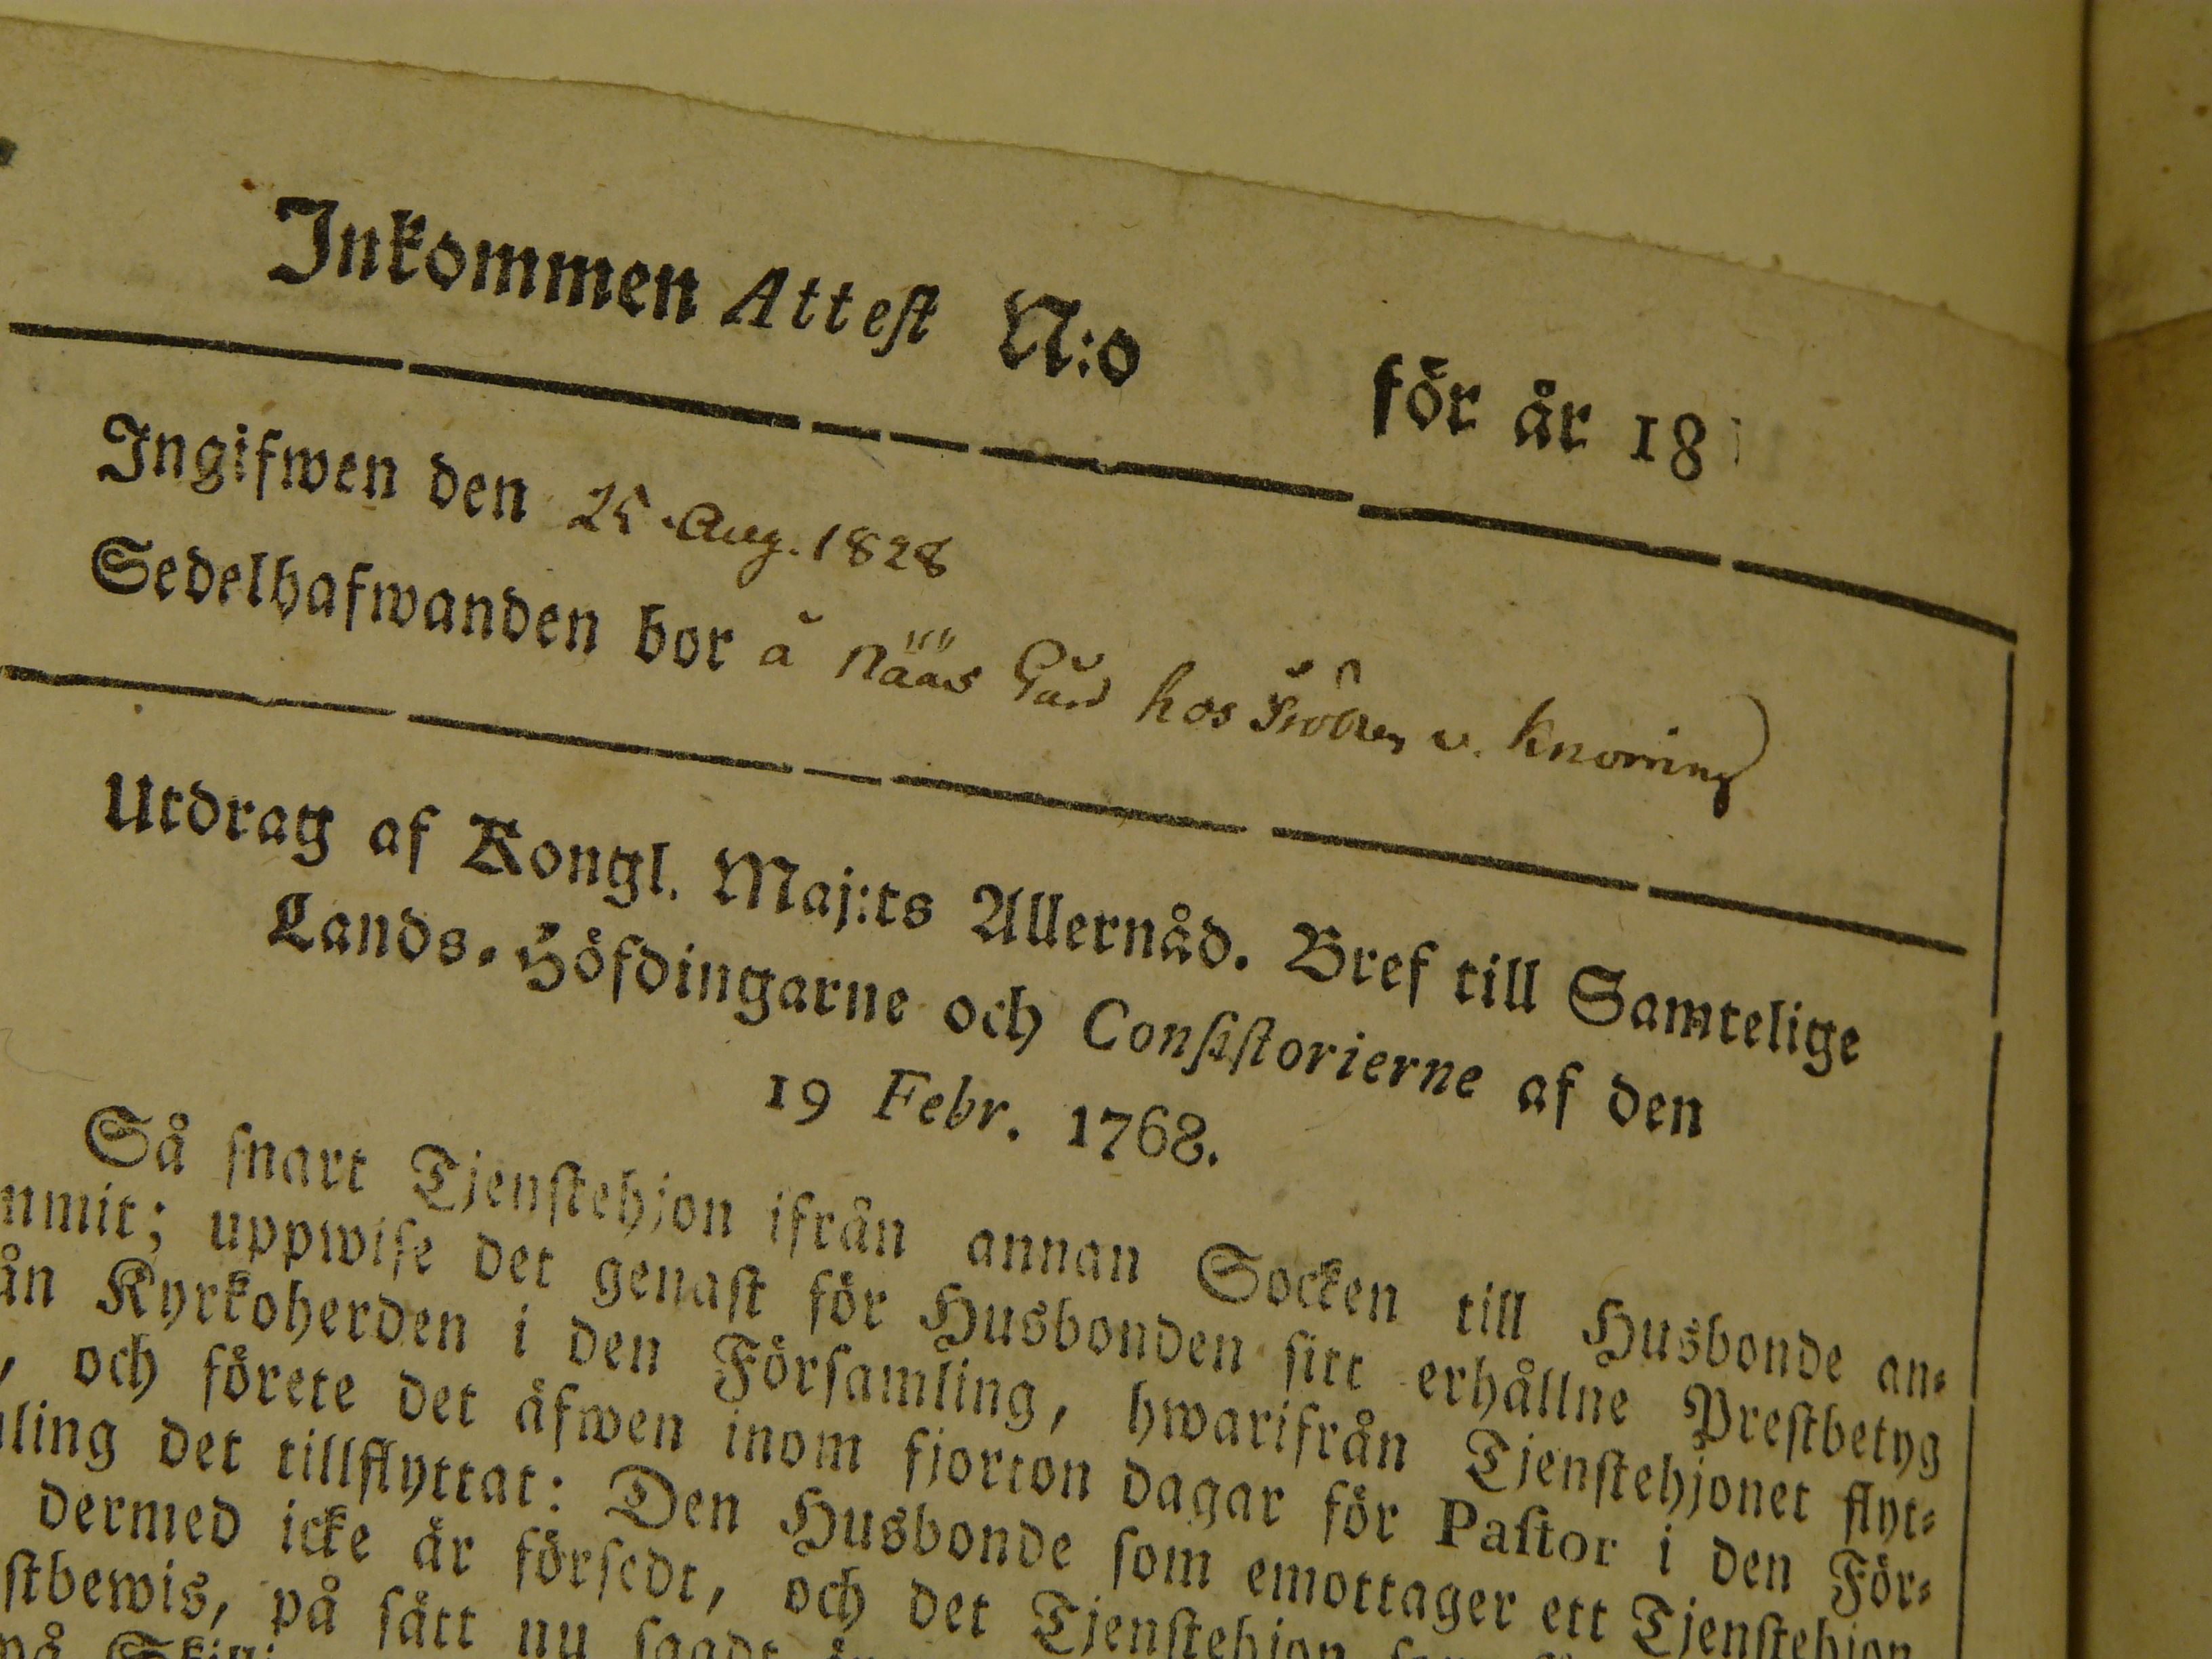 Inkommen Attest N:o för år 18
Ingifwen den 25. Aug. 1828
Sedelhafwanden bor å Nääs Gård hos v. Knorring
Utdrag af Kongl. Maj:ts Allernåd. Bref till Samtelige
Lands-Höfdingarne och Consistorierne af den
19 Febr. 1768.
Så snart Tjenstehjon ifrån annan Socken till Husbonde an-
mmit; uppwise det genast för Husbonden sitt erhållne Prestbetyg
ån Kyrkoherden i den Församling, hwarifrån Tjenstehjonet flyt-
, och förete det äfwen inom fjorton dagar för Pastor i den För-
ling det tillflyttat: Den Husbonde som emottager ett Tjenstehjon
dermed icke är försedt, och det Tjenstehjon
stbewis, på sätt nu sagdt är
på